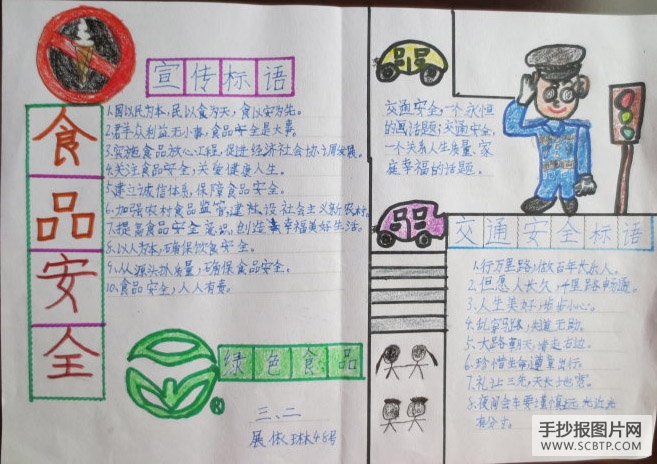 食品安全
宣传标语
1.国以民为本,民以食为天,食以安为先。
2.群众利益无小事,食品安全是大事。
3.实施食品放心工程,促进经济社会协调发展。
4.关注食品安全,关爱健康人生。
5.建立诚信体系,保障食品安全。
6.加强农村食品监管,建设社会主义新农村。
7.提高食品安全意识,创造幸福美好生活。
8.以人为本,确保饮食安全。
9.从源头抓质量,确保食品安全。
10.食品安全,人人有责。
绿色食品
R
三、二
展 琳48号
交通安全,一个永恒
的 话题;交通安全,
一个关系人生质量,家
庭幸福的话题。
交通安全标语
1.行万里路,做百年长乐人。
2.但愿人长久,千里路畅通。
3.人生美好,步步小心。
4.乱穿马路,失道无助。
5.大路朝天,请走右边。
6.珍惜生命,遵章出行。
7.礼让三先,天长地宽。
8.夜间会车要谨慎,远光近光
有分寸。
手抄报图片网
WWW.SCBTP.COM